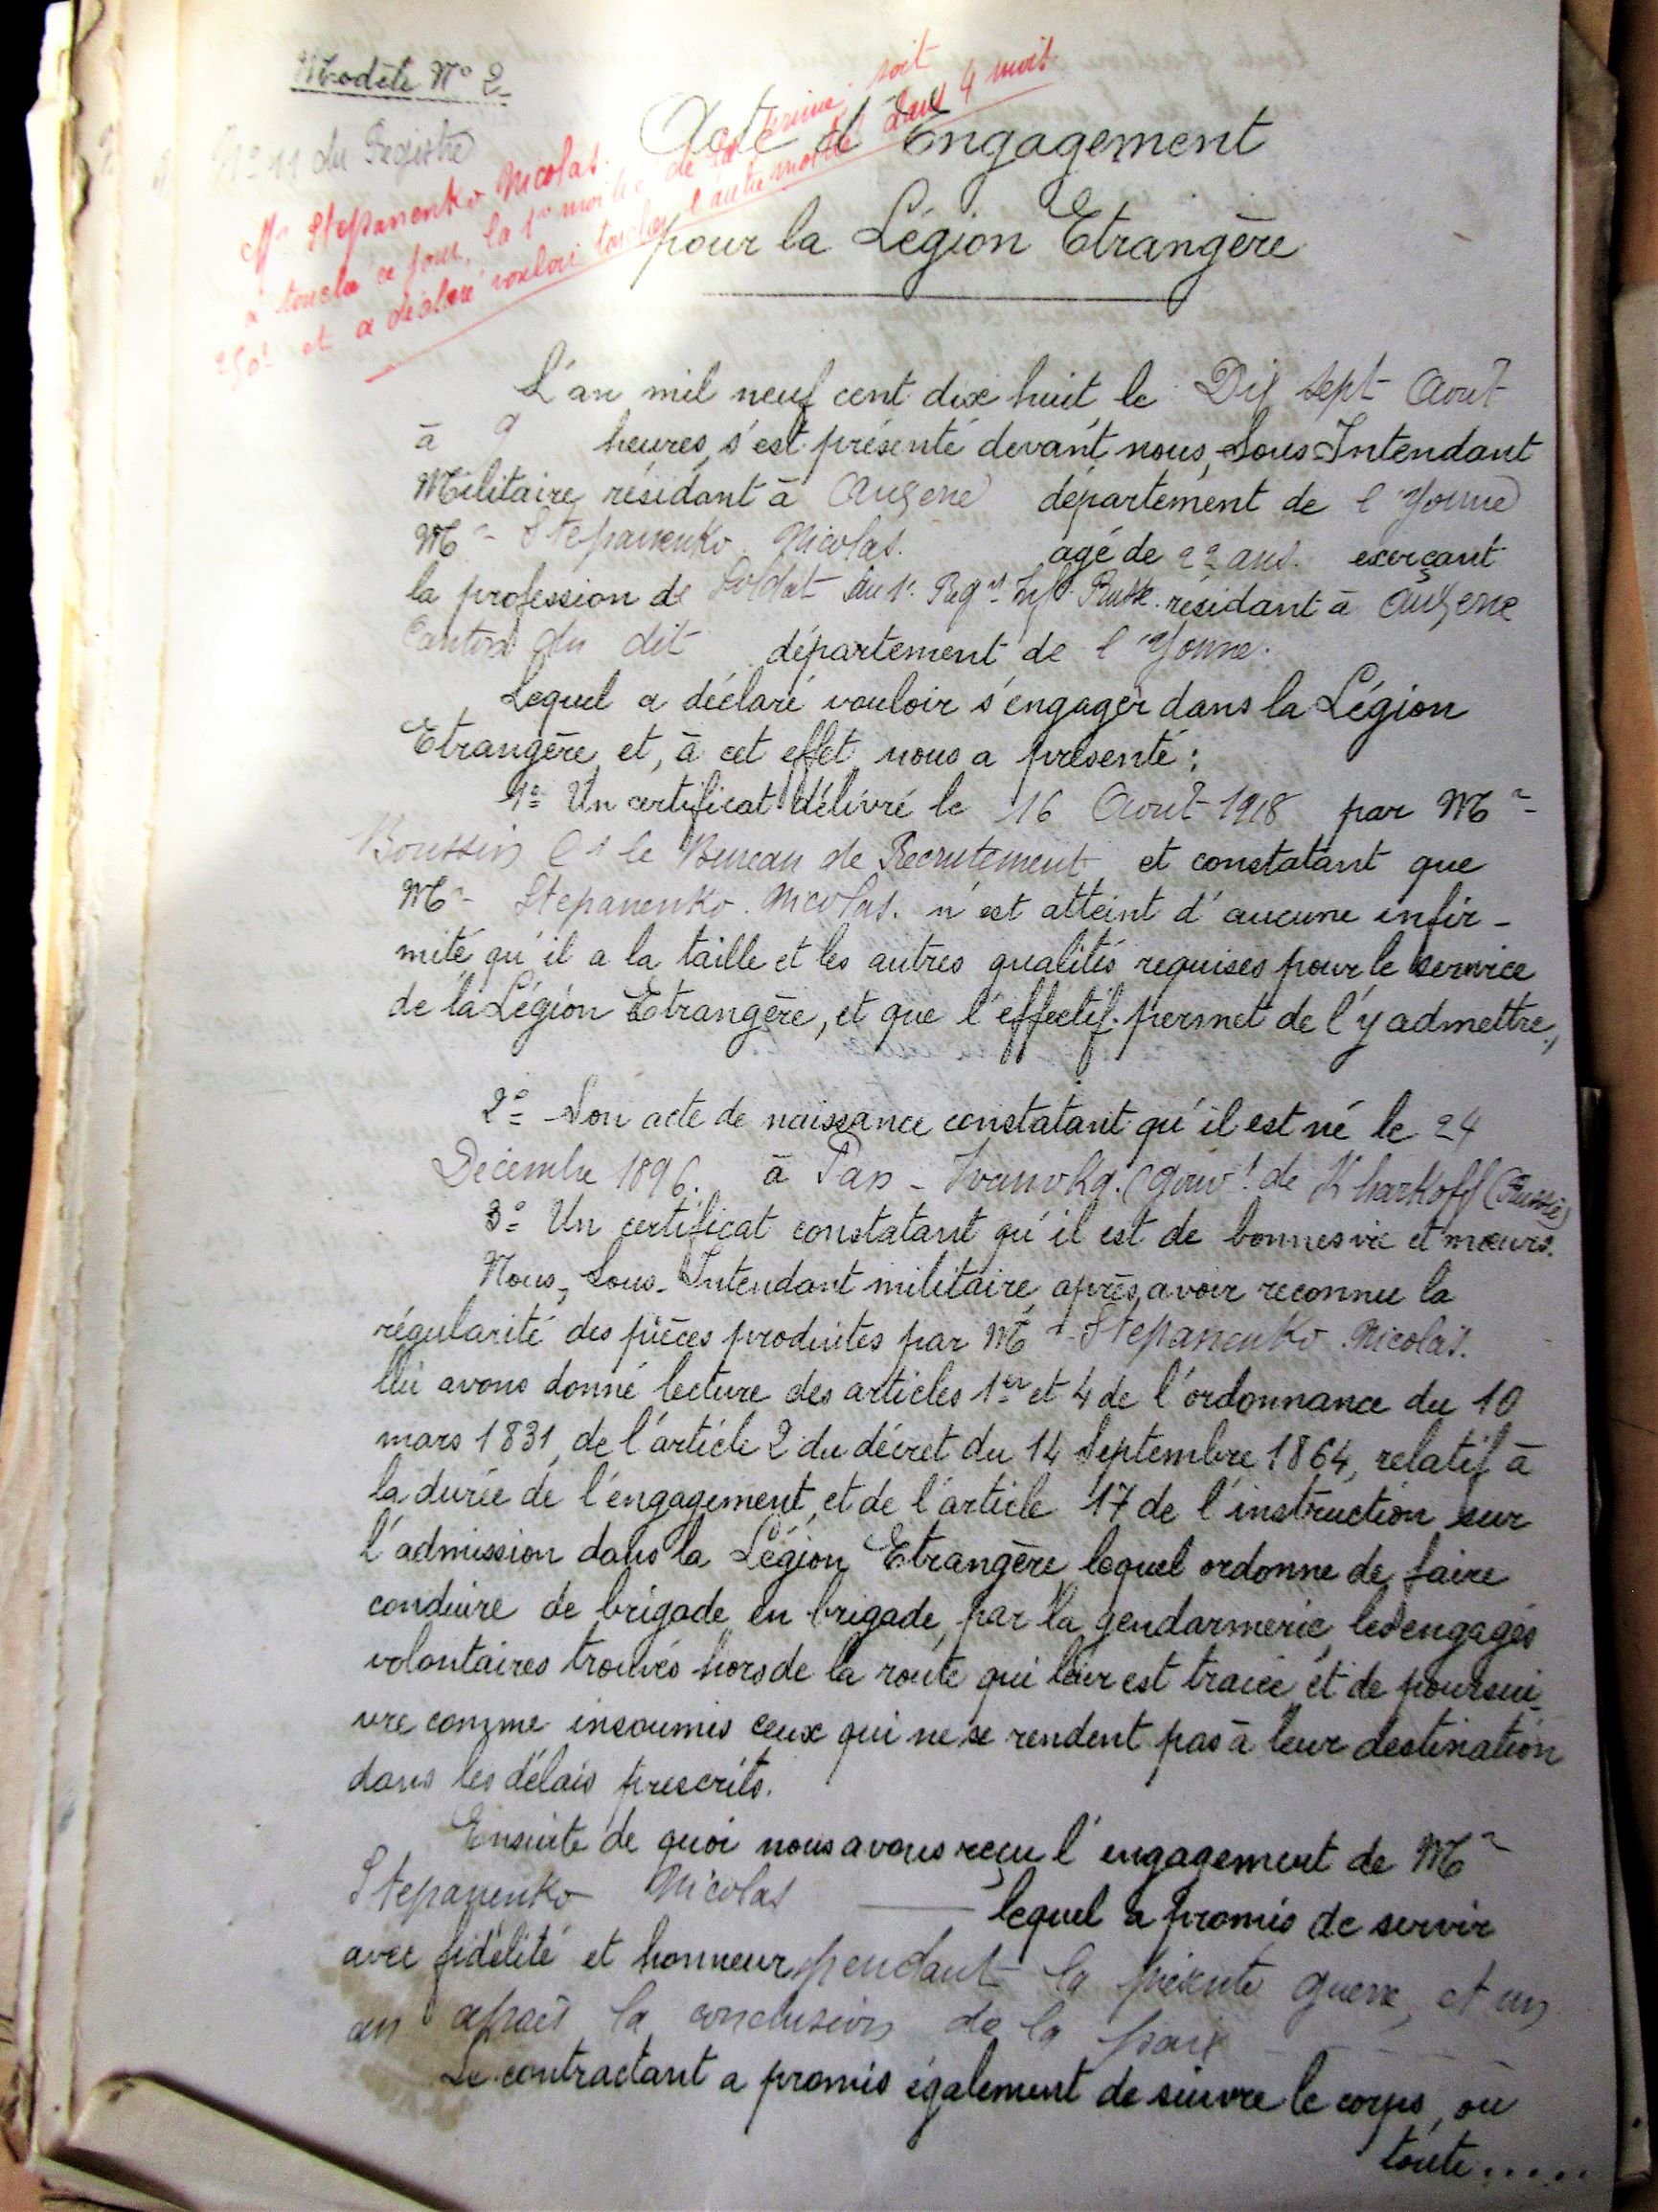 Modèle N° 2
N° 11 du Registre
Mr Stepanenko Nicolas.
a touché ce jour, la 1re moitié de la prime, soit
250f et a déclaré vouloir toucher l'autre moitié dans 4 mois
Acte d'Engagement
pour la Légion Etrangère
L'an mil neuf cent dix huit le Dix sept Août
à 9 heures, s'est présenté devant nous, Sous-Intendant
Militaire résidant à Auxerre département de l'Yonne
Mr Stepanenko Nicolas. agé de 22 ans. exerçant
la profession de Soldat au 1r Regt Inf. Russe. résidant à Auxerre
Canton du dit département de l'Yonne.
Lequel a déclaré vouloir s'engager dans la Légion
Etrangère et, à cet effet nous a présenté :
1° Un certificat délivré le 16 Août 1918 par Mr
Boussin Ct le Bureau de Recrutement et constatant que
Mr Stepanenko. Nicolas. n'est atteint d'aucune infir-
mité qu'il a la taille et les autres qualités requises pour le service
de la Légion Etrangère, et que l'effectif permet de l'y admettre,
2° Son acte de naissance constatant qu'il est né le 24
Décembre 1896. à Pan-Ivanovka. (Gouvt de Kharkoff (Russie)
3° Un certificat constatant qu'il est de bonnes vie et mœurs.
Nous, Sous-Intendant militaire, après avoir reconnu la
régularité des pièces produites par Mr Stepanenko. Nicolas.
lui avons donné lecture des articles 1er et 4 de l'ordonnance du 10
mars 1831, de l'article 2 du décret du 14 Septembre 1864, relatif à
la durée de l'engagement, et de l'article 17 de l'instruction sur
l'admission dans la Légion Etrangère lequel ordonne de faire
conduire de brigade en brigade, par la gendarmerie, les engagés
volontaires trouvés hors de la route qui leur est tracée et de poursui-
vre comme insoumis ceux qui ne se rendent pas à leur destination
dans les délais prescrits.
Ensuite de quoi nous avons reçu l'engagement de Mr
Stepanenko Nicolas lequel a promis de servir
avec fidélité et honneur pendant la présente guerre, et un
an après la conclusion de la paix
Le contractant a promis également de suivre le corps, ou
toute.....